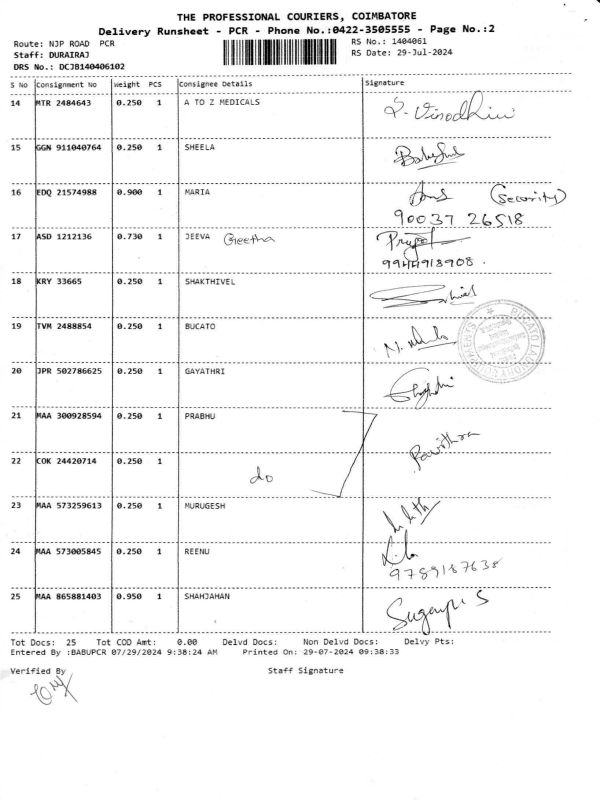 THE PROFESSIONAL COURIERS, COIMBATORE
Delivery Runsheet - PCR - Phone No.:0422-3505555 - Page No.:2
Route: NJP ROAD PCR RS No.: 1404061
Staff: DURAIRAJ RS Date: 29-Jul-2024
DRS No.: DCJB140406102
S No Consignment No Weight PCS Consignee Details Signature
14 MTR 2484643 0.250 1 A TO Z MEDICALS
15 GGN 911040764 0.250 1 SHEELA
16 EDQ 21574988 0.900 1 MARIA (Security)
90037 26518
17 ASD 1212136 0.730 1 JEEVA Geetha
9944918908.
18 KRY 33665 0.250 1 SHAKTHIVEL
19 TVM 2488854 0.250 1 BUCATO
20 JPR 502786625 0.250 1 GAYATHRI
21 MAA 300928594 0.250 1 PRABHU
Pavithra
22 COK 24420714 0.250 1
do
23 MAA 573259613 0.250 1 MURUGESH
24 MAA 573005845 0.250 1 REENU
9789187638
25 MAA 865881403 0.950 1 SHAHJAHAN
Tot Docs: 25 Tot COD Amt: 0.00 Delvd Docs: Non Delvd Docs: Delvy Pts:
Entered By :BABUPCR 07/29/2024 9:38:24 AM Printed On: 29-07-2024 09:38:33
Verified By Staff Signature